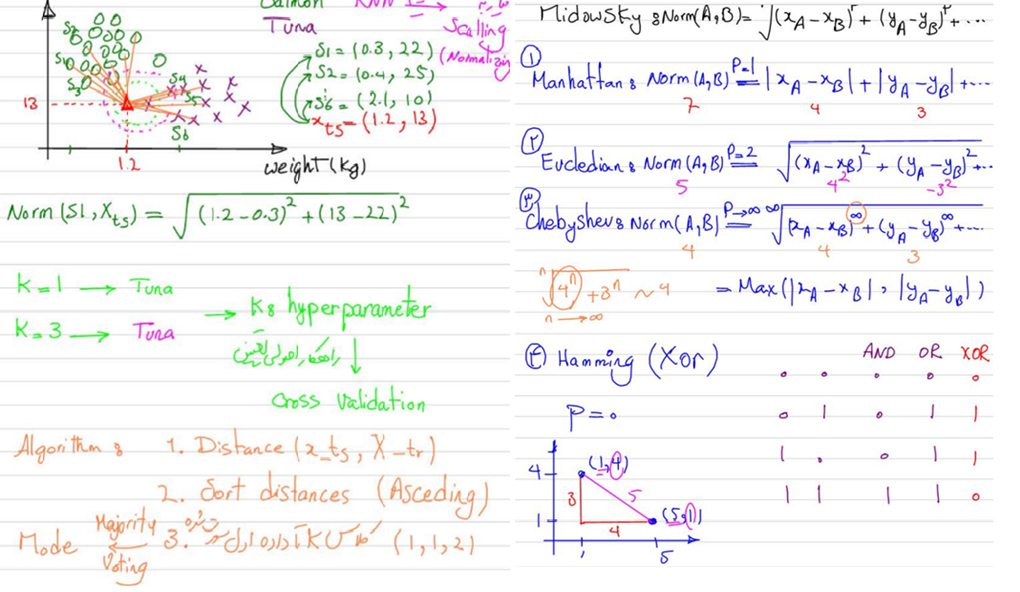 Salmon
Tuna
Scalling
(Normalizing
S1 = (0.3, 22)
S2 = (0.4, 25)
S6 = (2.1, 10)
x_ts = (1.2, 13)
S4
S5
S6
13
1.2
weight (kg)
Norm (S1, X_ts) = √((1.2 - 0.3)² + (13 - 22)²)
K = 1 → Tuna
K = 3 → Tuna
→ K: hyperparameter
Cross Validation
Algorithm: 1. Distance (x_ts, X_tr)
2. Sort distances (Asceding)
3. (1, 1, 2)
Majority
Voting
Mode
Midowsky: Norm(A,B) = √((x_A - x_B)^p + (y_A - y_B)^p + ...
① Manhattan: Norm(A,B) P=1 = |x_A - x_B| + |y_A - y_B| + ...
7 4 3
② Eucledian: Norm(A,B) P=2 = √((x_A - x_B)² + (y_A - y_B)² + ...
5 4² -3²
③ Chebyshev: Norm(A,B) P→∞ = ∞√((x_A - x_B)^∞ + (y_A - y_B)^∞ + ...
4 4 3
n√(4^n + 3^n) ~ 4 = Max(|x_A - x_B|, |y_A - y_B|)
n → ∞
④ Hamming (Xor)
AND OR XOR
0 0 0 0 0
P = 0
0 1 0 1 1
1 0 0 1 1
1 1 1 1 0
4 (1, 4)
3 5
1 4 (5, 1)
1 5